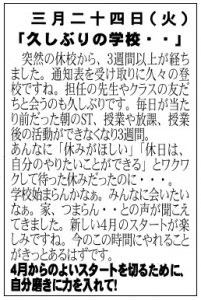 三月二十四日（火）
「久しぶりの学校・・」
突然の休校から、3週間以上が経ち
ました。通知表を受け取りに久々の登
校ですね。担任の先生やクラスの友だ
ちと会うのも久しぶりです。毎日が当た
り前だった朝のST、授業や放課、授業
後の活動ができなくなり3週間。
あんなに「休みがほしい」「休日は、
自分のやりたいことができる」とワクワ
クして待った休みだったのに・・・。
学校始まらんかなぁ。みんなに会いたい
なぁ。家、つまらん・・との声が聞こえ
てきました。新しい4月のスタートが楽
しみですね。今のこの時間にやれること
がきっとあるはずです。
4月からのよいスタートを切るために、
自分磨きに力を入れて!